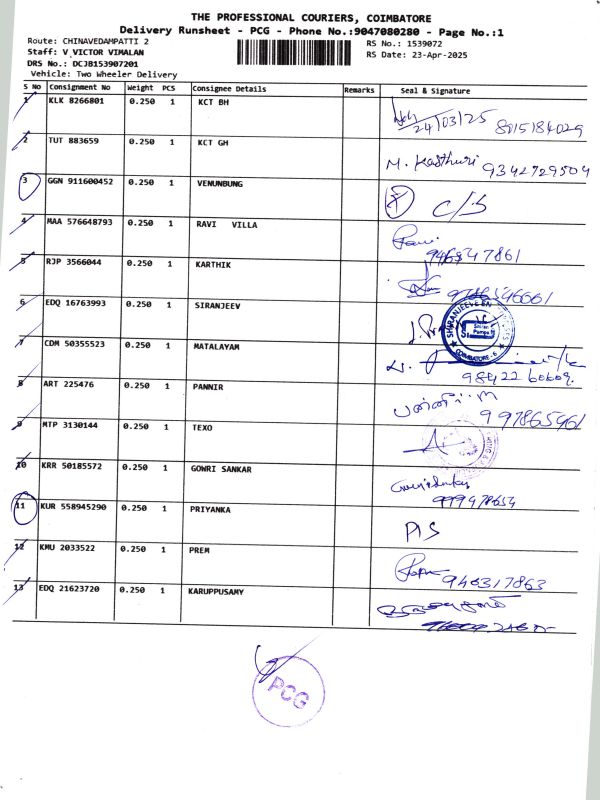 THE PROFESSIONAL COURIERS, COIMBATORE
Delivery Runsheet - PCG - Phone No.:9047080280 - Page No.:1
Route: CHINAVEDAMPATTI 2
Staff: V VICTOR VIMALAN
DRS No.: DCJB153907201
Vehicle: Two Wheeler Delivery
RS No.: 1539072
RS Date: 23-Apr-2025
S No Consignment No Weight PCS Consignee Details Remarks Seal & Signature
1 KLK 8266801 0.250 1 KCT BH 24/03/25 8015184029
2 TUT 883659 0.250 1 KCT GH M. Kasthuri 9342729504
3 GGN 911600452 0.250 1 VENUNBUNG C/S
4 MAA 576648793 0.250 1 RAVI VILLA
5 RJP 3566044 0.250 1 KARTHIK
6 EDQ 16763993 0.250 1 SIRANJEEV
7 CDM 50355523 0.250 1 MATALAYAM
8 ART 225476 0.250 1 PANNIR
9 MTP 3130144 0.250 1 TEXO
10 KRR 50185572 0.250 1 GOWRI SANKAR
11 KUR 558945290 0.250 1 PRIYANKA
12 KMU 2033522 0.250 1 PREM 946317863
13 EDQ 21623720 0.250 1 KARUPPUSAMY
PCG